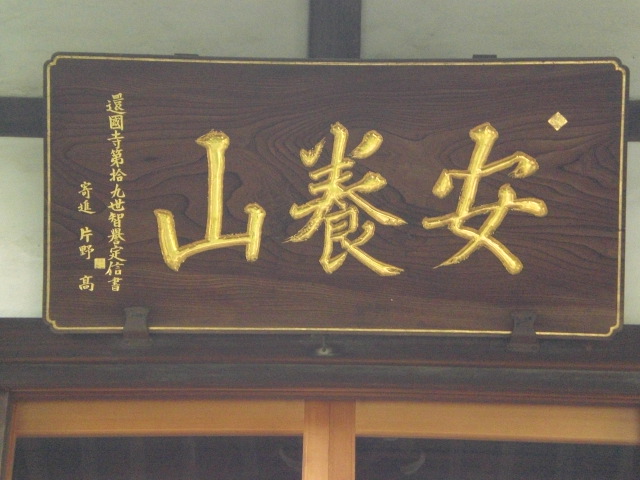 安養山
還國寺第拾九世智譽定信書
寄進 片野 高